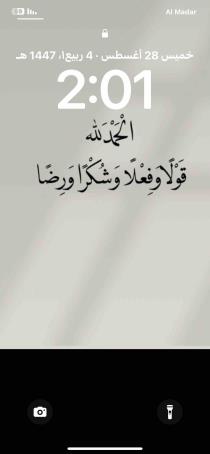 Al Madar
خميس 28 أغسطس · 4 ربيع١، 1447 هـ
2:01
الْحَمْدُ لله
قَوْلًا وَفِعْلًا وَشُكْرًا وَرِضًا